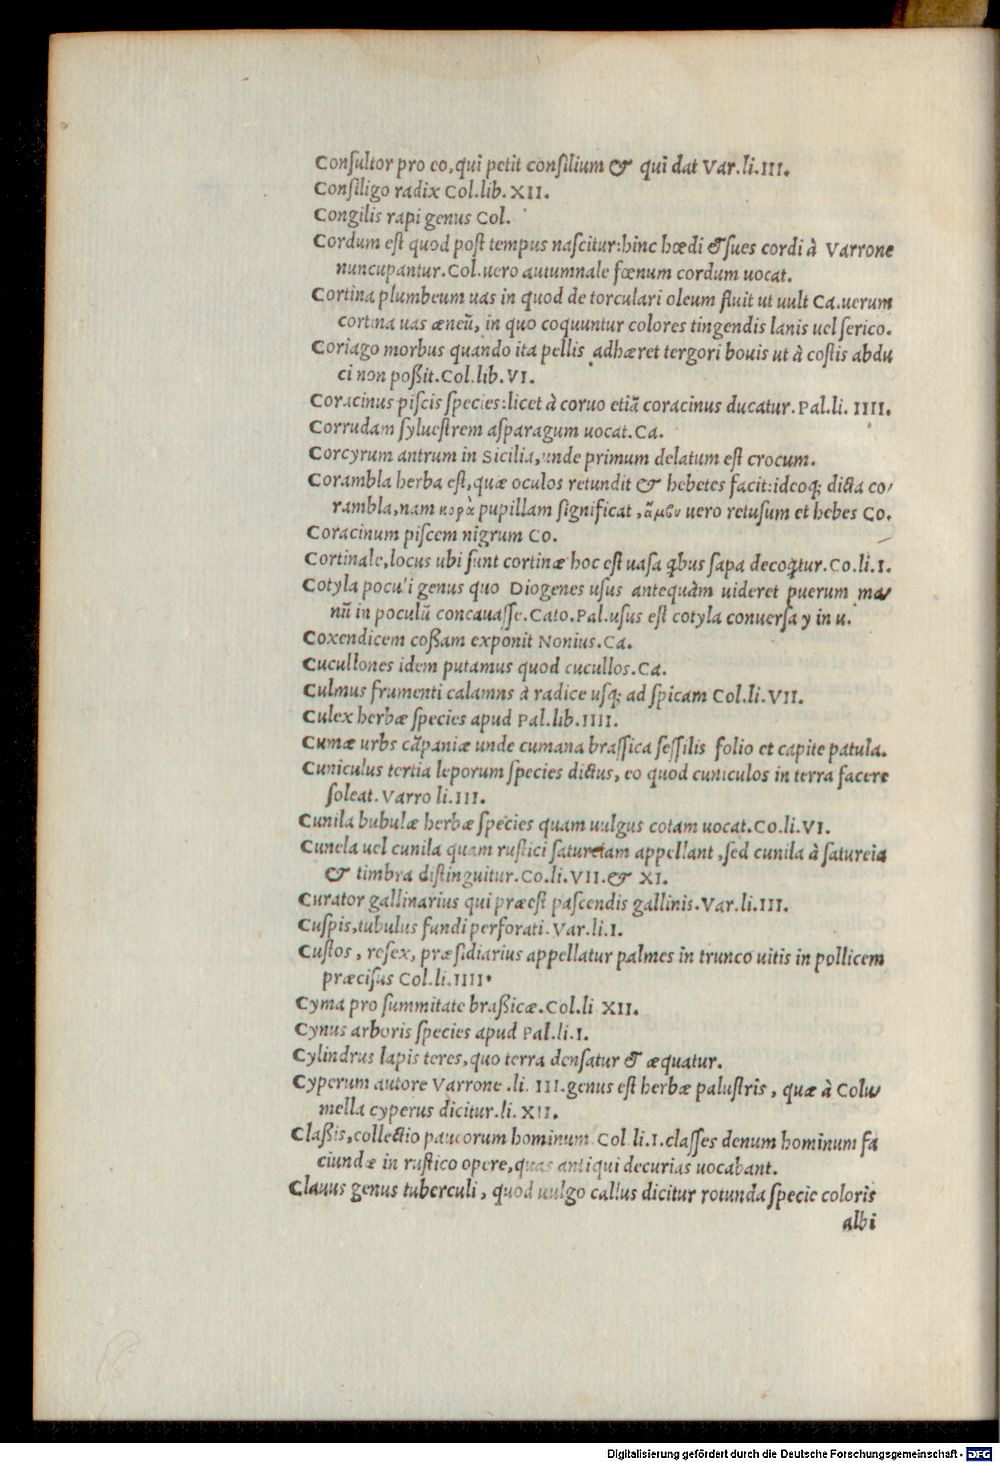 Conſultor pro eo, qui petit conſilium & qui dat Var.li.III.
Conſiligo radix Col.lib. XII.
Congilis rapi genus Col.
Cordum eſt quod poſt tempus naſcitur:hinc hœdi & ſues cordi à Varrone
nuncupantur.Col.uero autumnale fœnum cordum uocat.
Cortina plumbeum uas in quod de torculari oleum fluit ut uult Ca.uerum
cortina uas æneū, in quo coquuntur colores tingendis lanis uel ſerico.
Coriago morbus quando ita pellis adhæret tergori bouis ut à coſtis abdu
ci non poßit.Col.lib.VI.
Coracinus piſcis ſpecies:licet à coruo etiā coracinus ducatur.Pal.li. IIII.
Corrudam ſylueſtrem aſparagum uocat.Ca.
Corcyrum antrum in Sicilia,unde primum delatum eſt crocum.
Corambla herba eſt,quæ oculos retundit & hebetes facit:ideoq; dicta co-
rambla,nam κορὰ pupillam ſignificat ,ἄμβυ uero retuſum et hebes Co.
Coracinum piſcem nigrum Co.
Cortinale,locus ubi ſunt cortinæ hoc eſt uaſa q̃bus ſapa decoq̃tur.Co.li.I.
Cotyla poculi genus quo Diogenes uſus antequàm uideret puerum ma-
nū in poculū concauaſſe.Cato.Pal.uſus eſt cotyla conuerſa y in u.
Coxendicem coßam exponit Nonius.Ca.
Cucullones idem putamus quod cucullos.Ca.
Culmus frumenti calamns à radice uſq; ad ſpicam Col.li.VII.
Culex herbæ ſpecies apud Pal.lib.IIII.
Cumæ urbs cāpaniæ unde cumana braſſica ſeſſilis folio et capite patula.
Cuniculus tertia leporum ſpecies dictus, eo quod cuniculos in terra facere
ſoleat. Varro li.III.
Cunila bubulæ herbæ ſpecies quam uulgus cotam uocat.Co.li.VI.
Cunela uel cunila quam ruſtici ſatureiam appellant ,ſed cunila à ſatureia
& timbra diſtinguitur.Co.li.VII.& XI.
Curator gallinarius qui præeſt paſcendis gallinis.Var.li.III.
Cuſpis,tubulus fundi perforati.Var.li.I.
Cuſtos , reſex, præſidiarius appellatur palmes in trunco uitis in pollicem
præciſus Col.li.IIII.
Cyma pro ſummitate braßicæ.Col.li XII.
Cynus arboris ſpecies apud Pal.li.I.
Cylindrus lapis teres,quo terra denſatur & æquatur.
Cyperum autore Varrone .li. III.genus eſt herbæ paluſtris , quæ à Colu-
mella cyperus dicitur.li. XII.
Claßis,collectio paucorum hominum Col li.I.claſſes denum hominum fa
ciundæ in ruſtico opere,quas antiqui decurias uocabant.
Clauus genus tuberculi , quod uulgo callus dicitur rotunda ſpecie coloris
albi
Digitalisierung gefördert durch die Deutsche Forschungsgemeinschaft - DFG